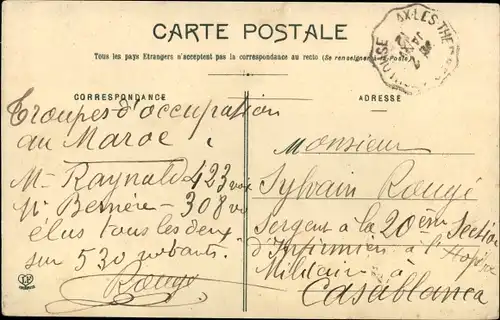 CARTE POSTALE
Tous les pays Etrangers n'acceptent pas la correspondance au recto (Se renseigner à la Poste)
AX-LES-THE
CORRESPONDANCE
Troupes d'occupation
au Maroc
Mr Raynald 423 voix
Mr Bernère - 308 vo
élus tous les deux
sur 530 votants.
Rougé
ADRESSE
Monsieur
Sylvain Rougé
Sergent à la 20ème Section
d'Infirmiers à l'Hopital
Militaire à
Casablanca